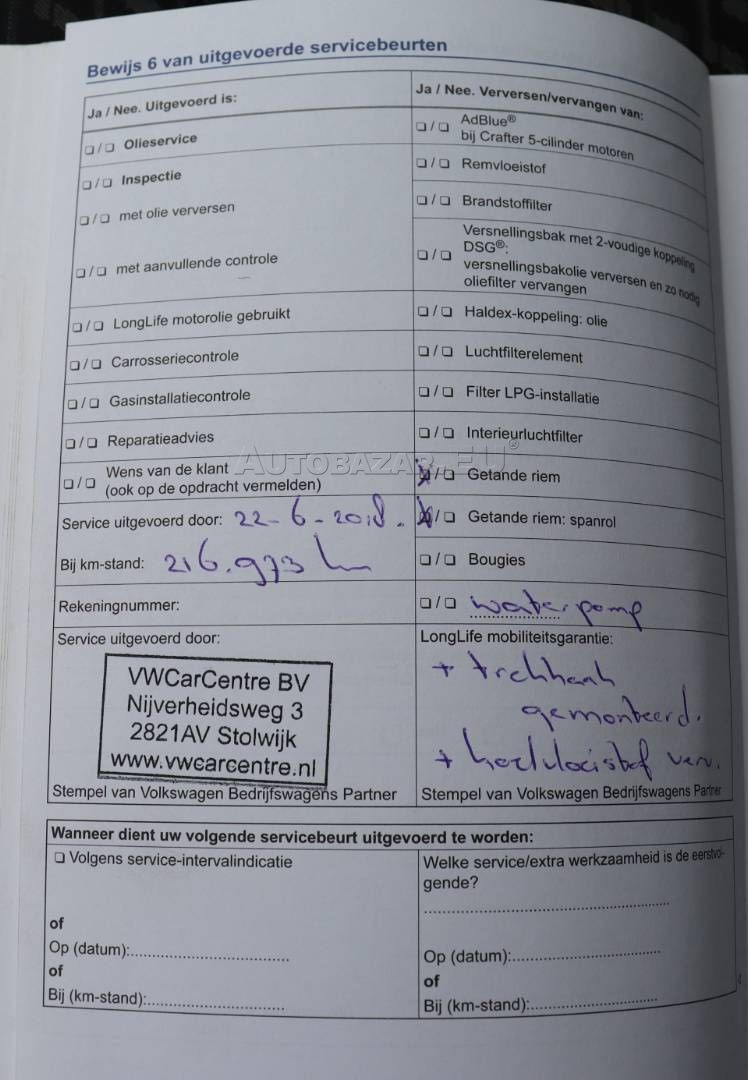 Bewijs 6 van uitgevoerde servicebeurten
Ja / Nee. Uitgevoerd is:
❑ / ❑ Olieservice
❑ / ❑ Inspectie
❑ / ❑ met olie verversen
❑ / ❑ met aanvullende controle
❑ / ❑ LongLife motorolie gebruikt
❑ / ❑ Carrosseriecontrole
❑ / ❑ Gasinstallatiecontrole
❑ / ❑ Reparatieadvies
❑ / ❑ Wens van de klant
(ook op de opdracht vermelden)
Service uitgevoerd door: 22-6-2018.
Bij km-stand: 216.973 km
Rekeningnummer:
Service uitgevoerd door:
VWCarCentre BV
Nijverheidsweg 3
2821AV Stolwijk
www.vwcarcentre.nl
Stempel van Volkswagen Bedrijfswagens Partner
Ja / Nee. Verversen/vervangen van:
❑ / ❑ AdBlue®
bij Crafter 5-cilinder motoren
❑ / ❑ Remvloeistof
❑ / ❑ Brandstoffilter
Versnellingsbak met 2-voudige koppeling
❑ / ❑ DSG®:
versnellingsbakolie verversen en zo nodig
oliefilter vervangen
❑ / ❑ Haldex-koppeling: olie
❑ / ❑ Luchtfilterelement
❑ / ❑ Filter LPG-installatie
❑ / ❑ Interieurluchtfilter
☒ / ❑ Getande riem
☒ / ❑ Getande riem: spanrol
❑ / ❑ Bougies
❑ / ❑ waterpomp
LongLife mobiliteitsgarantie:
+ trekhaak
gemonteerd.
+ koelvloeistof verv.
Stempel van Volkswagen Bedrijfswagens Partner
AUTOBAZAR.EU®
Wanneer dient uw volgende servicebeurt uitgevoerd te worden:
❑ Volgens service-intervalindicatie
of
Op (datum):
of
Bij (km-stand):
Welke service/extra werkzaamheid is de eerstvol-
gende?
Op (datum):
of
Bij (km-stand):